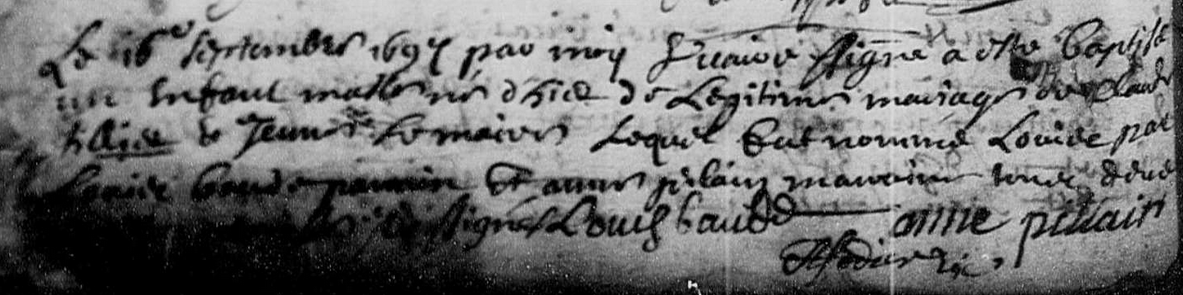 Le 16e Septembre 1697 par moy vicaire signé a esté baptisé
un Enfant masle né d'hier de Legitime mariage de
& Jeanne Lemaire Lequel Eut nommé Louis par
Louis parain Et anne pilain maraine tous deux
signés Louis baude anne pillain
vic